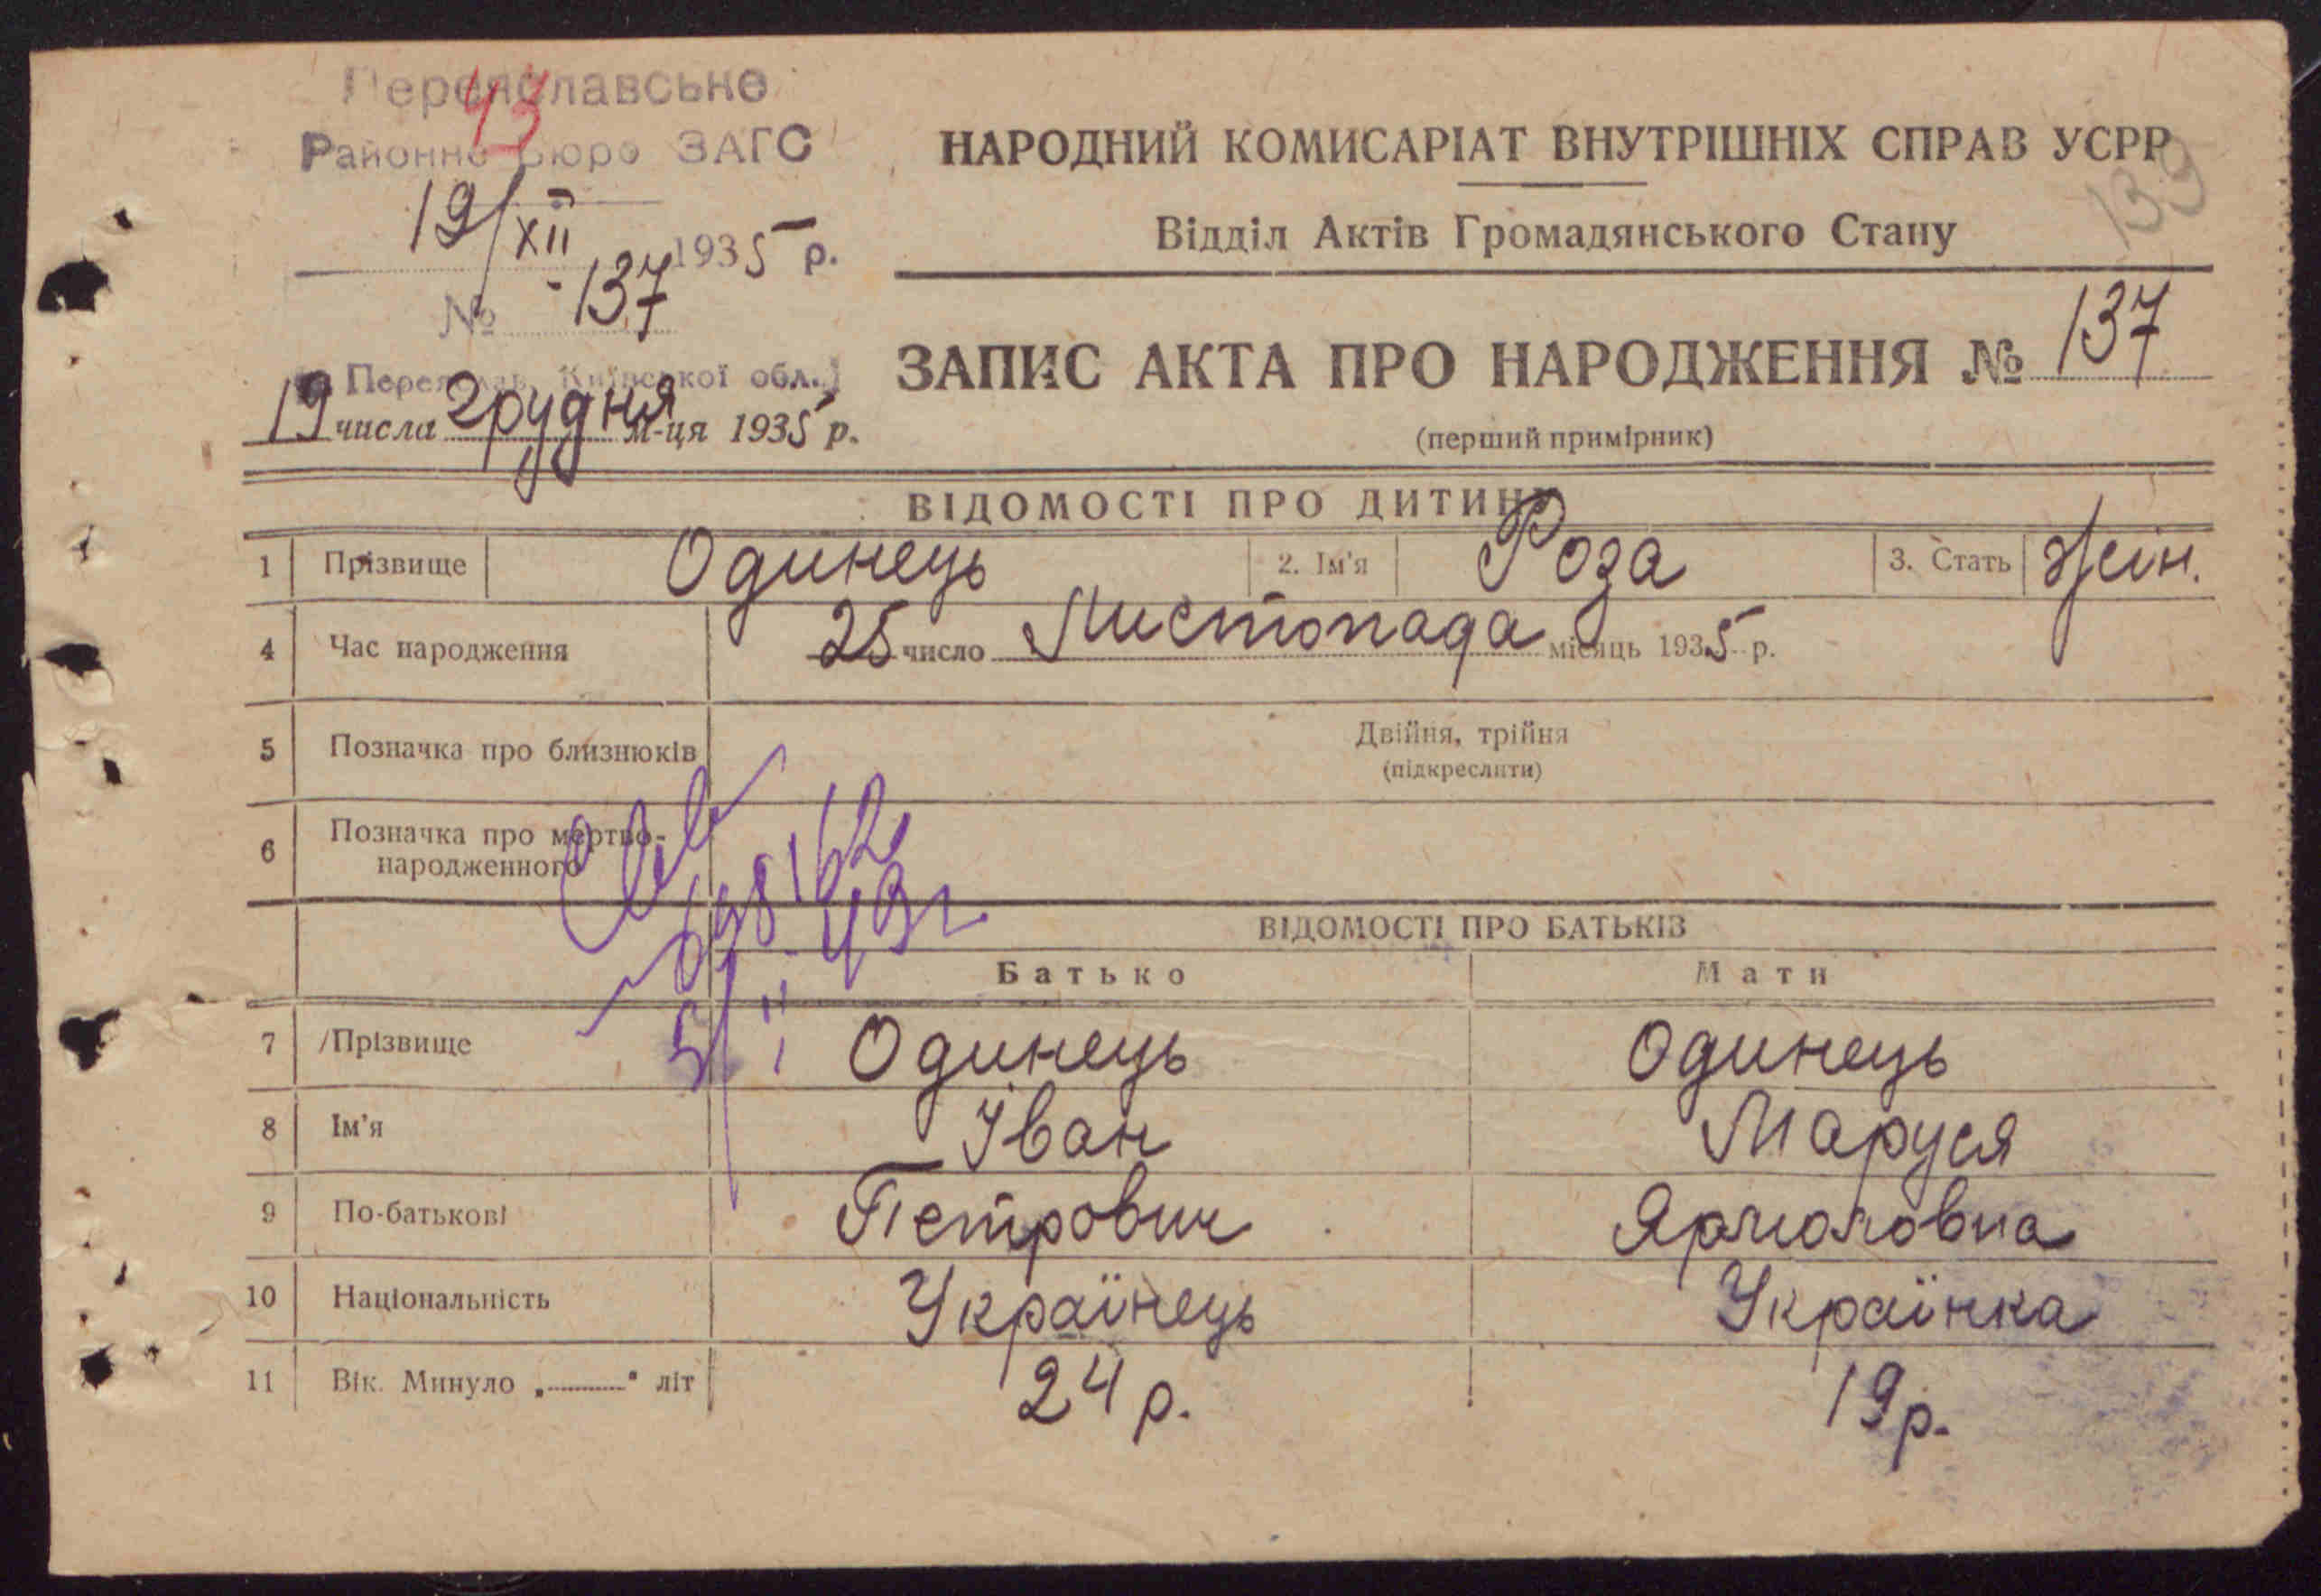 Переяславське
43
Районне Бюро ЗАГС
19/XII 1935 р.
№ -137
Переяслав, Київської обл.
19 числа грудня м-ця 1935 р.
139
НАРОДНИЙ КОМИСАРІАТ ВНУТРІШНІХ СПРАВ УСРР
Відділ Актів Громадянського Стану
ЗАПИС АКТА ПРО НАРОДЖЕННЯ № 137
(перший примірник)
ВІДОМОСТІ ПРО ДИТИНУ
1 Прізвище Одинець 2. Ім'я Роза 3. Стать жін.
4 Час народження 25 число Листопада місяць 1935 р.
5 Позначка про близнюків Двійня, трійня
(підкреслити)
6 Позначка про мертво-
народженного
ВІДОМОСТІ ПРО БАТЬКІВ
Батько Мати
7 /Прізвище Одинець Одинець
8 Ім'я Іван Маруся
9 По-батькові Петрович Ярмоловна
10 Національність Українець Українка
11 Вік. Минуло „ “ літ 24 р. 19 р.